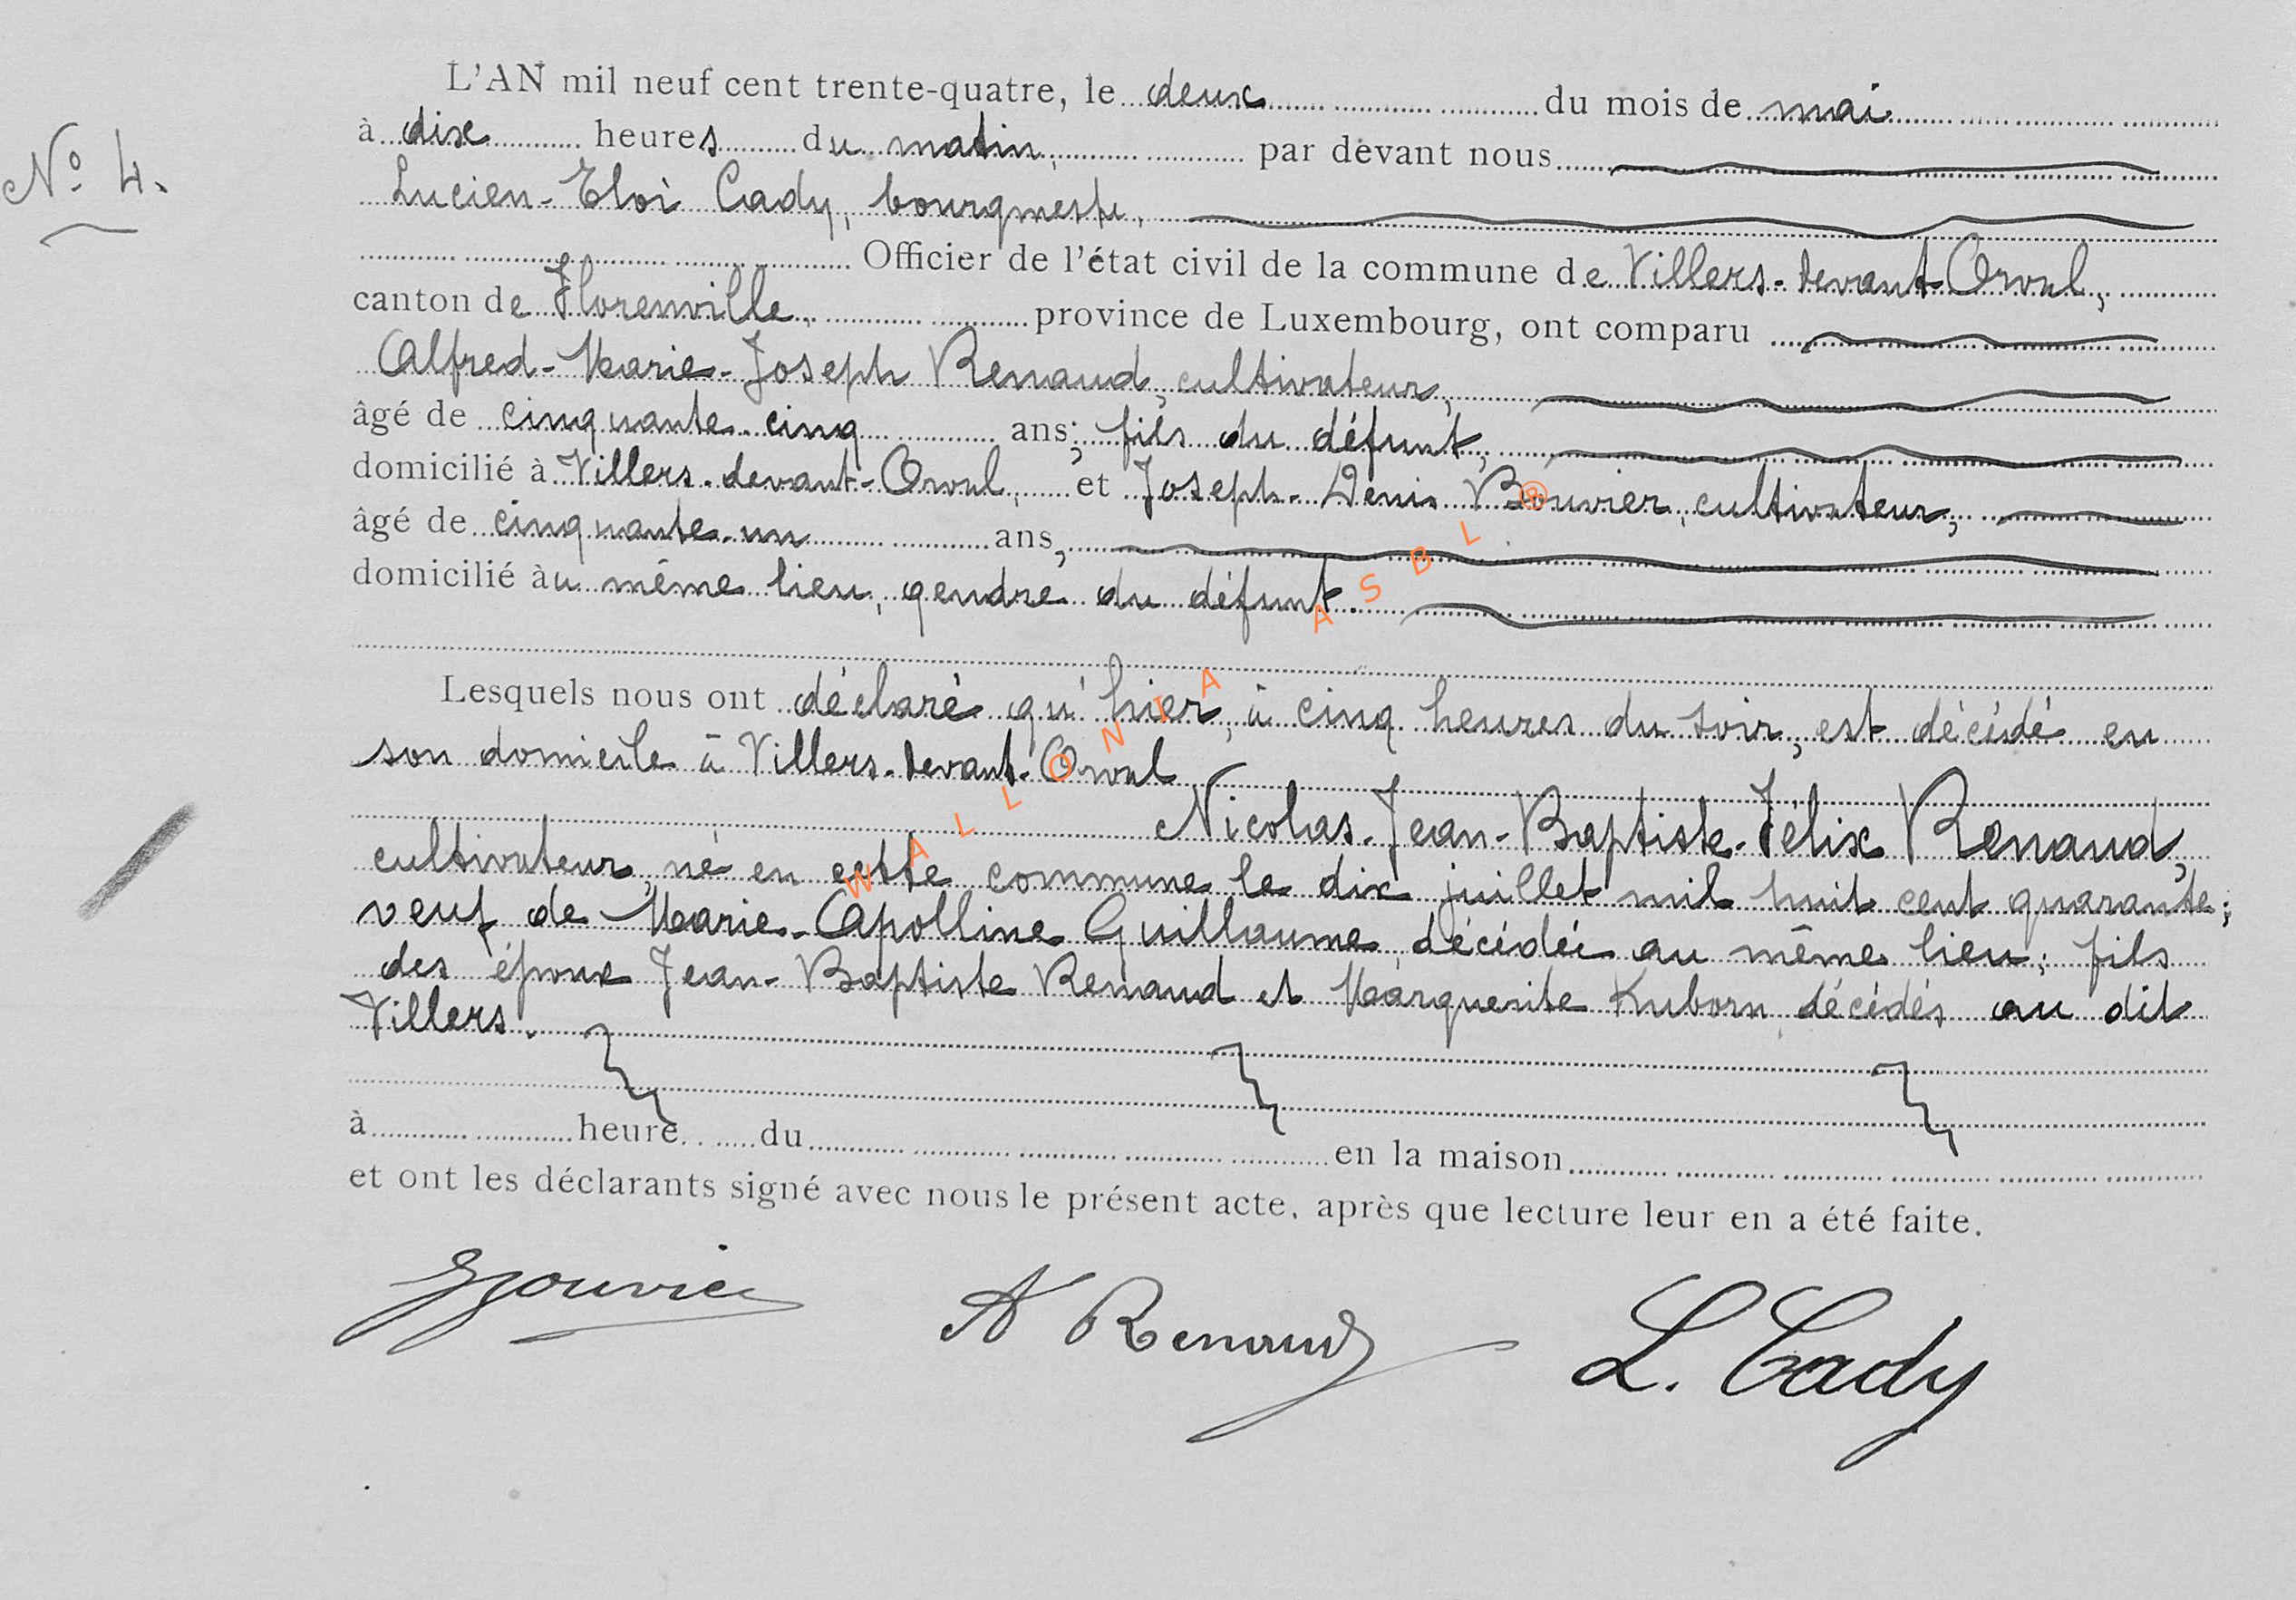 L'AN mil neuf cent trente-quatre, le deux du mois de mai
à dix heures du matin, par devant nous
N° 4.
Lucien-Eloi Cady, bourgmestre,
Officier de l'état civil de la commune de Villers-devant-Orval,
canton de Florenville, province de Luxembourg, ont comparu
Alfred-Marie-Joseph Renaud, cultivateur,
âgé de cinquante-cinq ans; fils du défunt,
domicilié à Villers-devant-Orval, et Joseph-Denis Bouvier, cultivateur,
âgé de cinquante-un ans,
domicilié àu même lieu, gendre du défunt.
Lesquels nous ont déclaré qu'hier, à cinq heures du soir, est décédé en
son domicile à Villers-devant-Orval
Nicolas-Jean-Baptiste-Félix Renaud,
cultivateur, né en cette commune le dix juillet mil huit cent quarante;
veuf de Marie-Apolline Guillaume, décédée au même lieu; fils
des époux Jean-Baptiste Renaud et Marguerite Kuborn, décédés au dit
Villers.
à heure du en la maison
et ont les déclarants signé avec nous le présent acte, après que lecture leur en a été faite.
Bouvier A Renaud L. Cady
WALLONIA ASBL ®